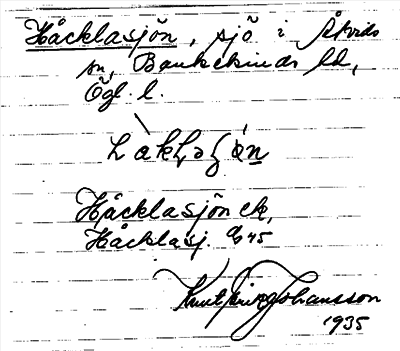 Håcklasjön, sjö i Åtvids
sn, Bankekinds hd,
Ögl. l.
Håcklasjön ek,
Håcklasj. G45
Knut Eric Johansson
1935